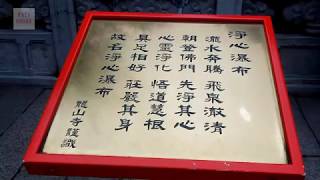 淨心瀑布
流水奔騰 飛泉澈清
朝登佛門 先淨其心
心靈淨化 悟道慧根
具足相好 莊嚴其身
故名淨心瀑布
龍山寺謹識